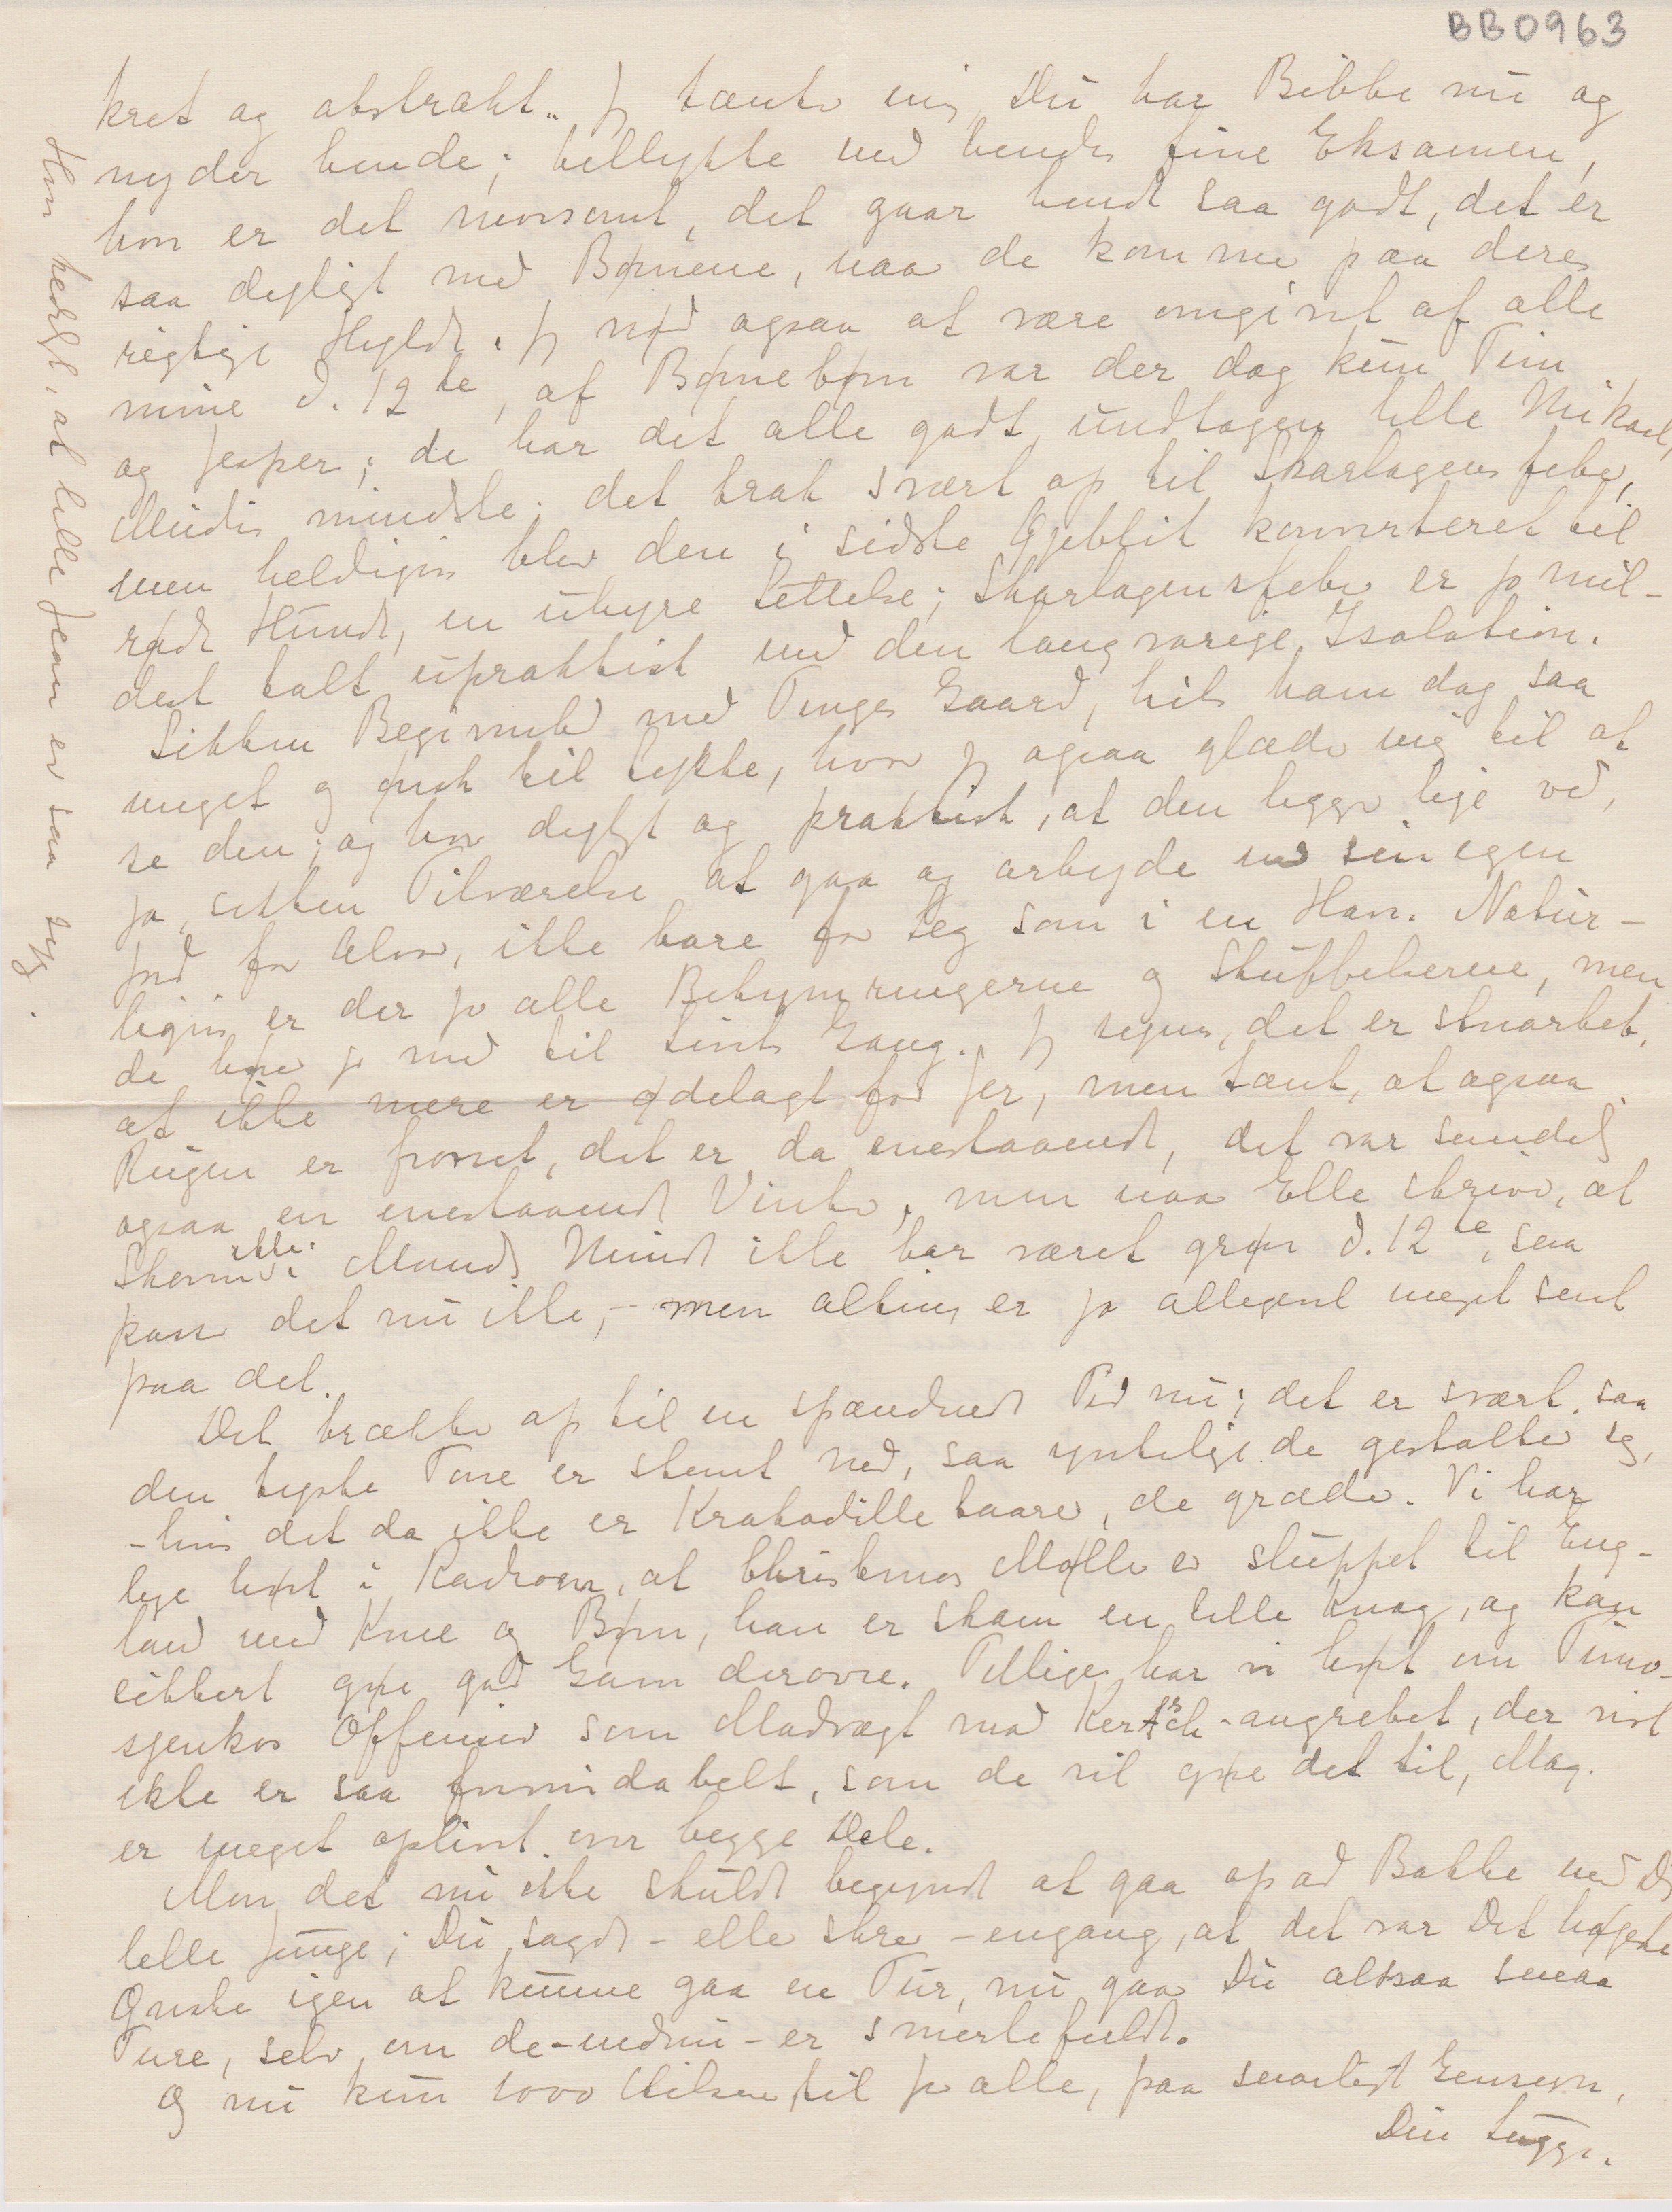 BB0963
kret og abstrakt.. Jeg tænker mig, Du har Bibbe nu og
nyder hende; tillykke med hendes fine Eksamen,
hvor er det morsomt, det gaar hende saa godt, det er
saa dejligt med Børnene, naar de komme paa deres
rigtige Hylde. Jeg nød ogsaa at være omgivet af alle
mine d. 12te, af Børnebørn var der dog kun Tim
og Jesper; de har det alle godt undtagen lille Mikael,
Mudis mindste; det trak svært op til Skarlagensfeber,
men heldigvis blev den i sidste Øjeblik konverteret til
røde Hunde, en uhyre Lettelse; Skarlagensfeber er jo mil-
dest talt upraktisk med den langvarige Isolation.
Sikken Begivenhed med Tinges Gaard, hils ham dog saa
meget og ønsk til Lykke, hvor jeg ogsaa glæder mig til at
se den; og hvor dejligt og praktisk, at den ligger lige ved,
ja, sikken Tilværelse at gaa og arbejde med sin egen
Jord for Alvor, ikke bare for Leg som i en Have. Natur-
ligvis er der jo alle Bekymringerne og Skuffelserne, men
de hører jo med til Livets Gang. Jeg synes, det er storartet,
at ikke mere er ødelagt for Jer, men tænk, at ogsaa
Rugen er frosset, det er da enestaaende, det var sandelig
ogsaa en enestaaende Vinter, men naar Elle skriver, at
Skoven i Mands Minde ikke har været grøn d. 12te, saa
ikke.
passer det nu ikke, - men alting er jo alligevel meget sent
paa det.
Det trækker op til en spændende Tid nu; det er svært, saa
den tyske Tone er stemt ned, saa ynkelige de gestalter sig,
- hvis det da ikke er Krokodilletaarer, de græder. Vi har
lige hørt i Radioen, at Christmas Møller er sluppet til Eng-
land med Kone og Børn, han er skam en lille Knag, og kan
sikkert gøre god Gavn derovre. Tillige har vi hørt om Timo-
sjenkos Offensiv som Modvægt mod Kertsch-angrebet, der vist
ikke er saa formidabelt, som de vil gøre det til, Mag.
er meget oplivet over begge Dele.
Mon det nu ikke skulde begynde at gaa op ad Bakke med Dig
lille Junge; Du sagde - eller skrev - engang, at det var Dit højeste
Ønske igen at kunne gaa en Tur, nu gaar Du altsaa smaa
Ture, selv om de - endnu - er smertefulde.
Og nu kun 1000 Hilsener til Jer alle, paa snarligt Gensyn,
Din Lugge.
Hvor kedeligt, at lille Jean er saa syg.